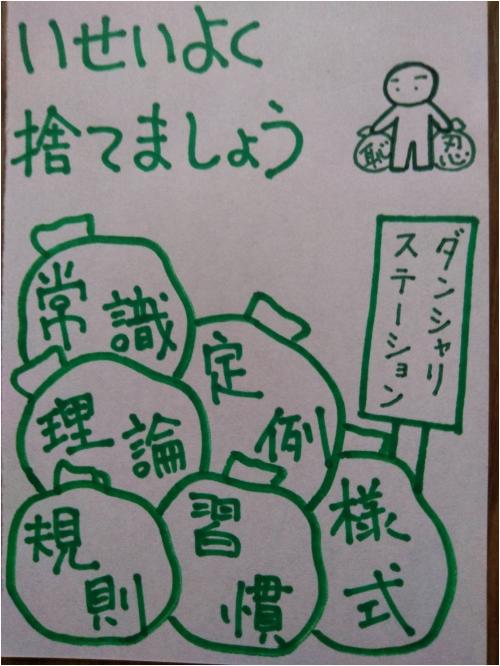 いせいよく
捨てましょう
恥
忍
ダンシャリ
ステーション
常識
定例
理論
規則
習慣
様式